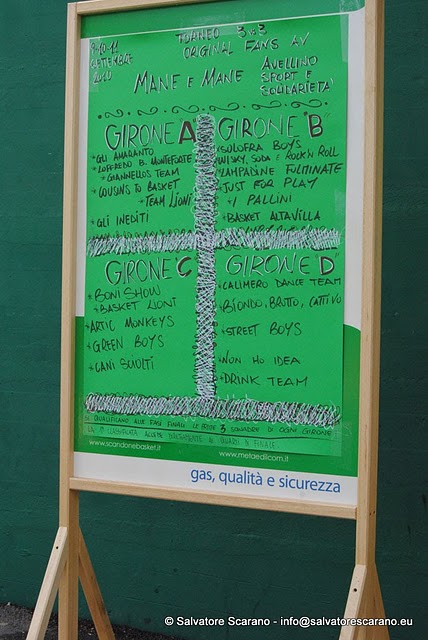 9-10-11
SETTEMBRE
2010
TORNEO 3vs3
ORIGINAL FANS AV
MANE e MANE
AVELLINO
SPORT E
SOLIDARIETA'
GIRONE "A"
• GLI AMARANTO
• LOFFREDO B. MONTEFORTE
• GIANNELLOS TEAM
• COUSINS TO BASKET
• TEAM LIONI
• GLI INEDITI
GIRONE "B"
• SOLOFRA BOYS
WISKY, SODA E ROCK'N ROLL
• LAMPADINE FULMINATE
• JUST FOR PLAY
• I PALLINI
• BASKET ALTAVILLA
GIRONE "C"
• BONI SHOW
• BASKET LIONI
• ARTIC MONKEYS
• GREEN BOYS
• CANI SCIOLTI
GIRONE "D"
• CALIMERO DANCE TEAM
• BIONDO, BRUTTO, CATTIVO
• STREET BOYS
• NON HO IDEA
• DRINK TEAM
SI QUALIFICANO ALLE FASI FINALI LE PRIME 3 SQUADRE DI OGNI GIRONE
LA 1ª CLASSIFICATA ACCEDE DIRETTAMENTE AI QUARTI DI FINALE
www.scandonebasket.it
www.metaedilcom.it
gas, qualità e sicurezza
© Salvatore Scarano - info@salvatorescarano.eu